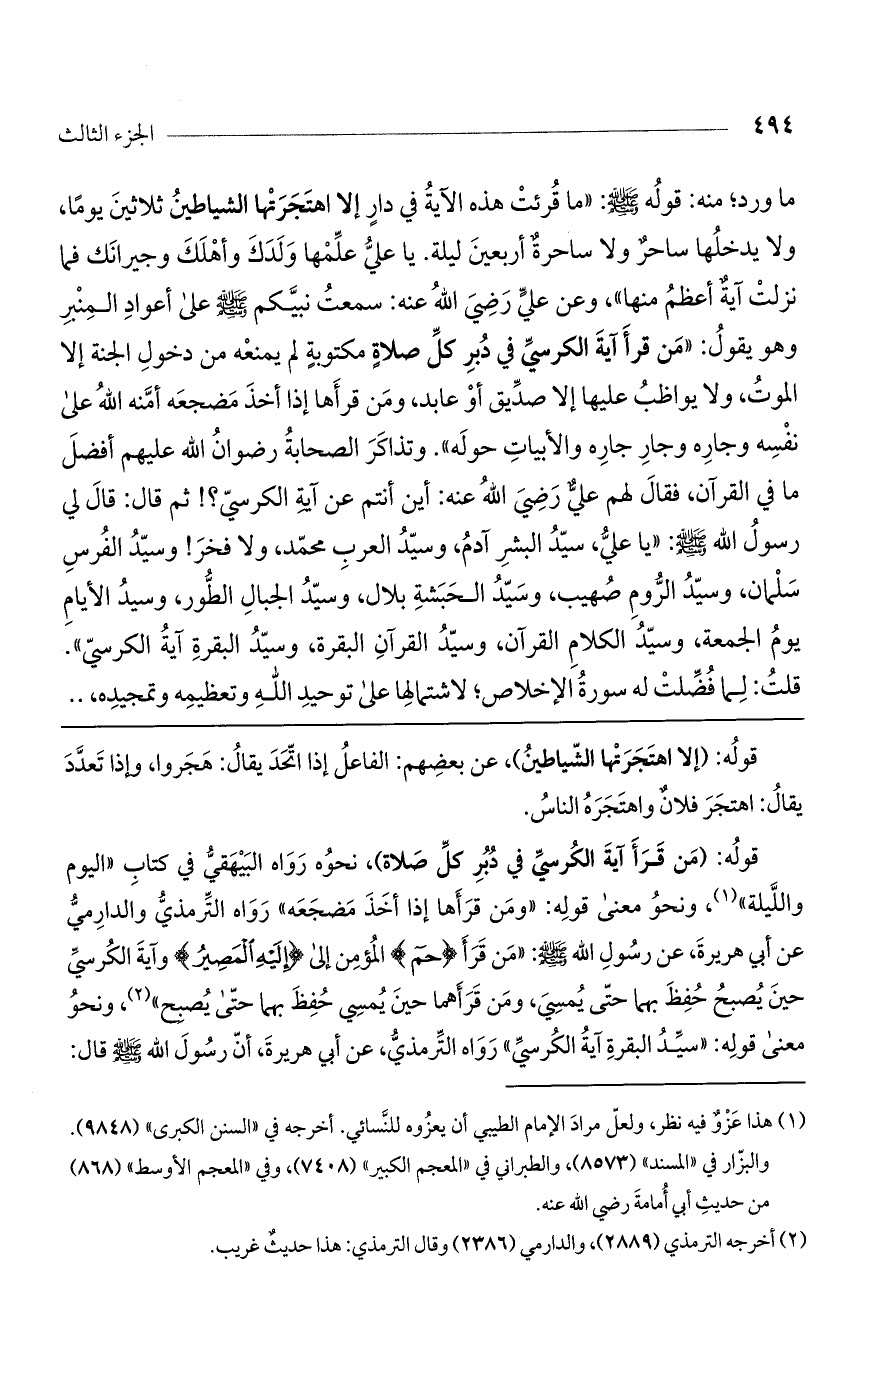 ٤٩٤ الجزء الثالث
ما ورد؛ منه: قولُه ﷺ: «ما قُرئتْ هذه الآيةُ في دارٍ إلا اهتَجَرَتْها الشياطينُ ثلاثينَ يومًا،
ولا يدخلُها ساحرٌ ولا ساحرةٌ أربعينَ ليلة. يا عليُّ علِّمْها وَلَدَكَ وأهْلَكَ وجيرانَك فما
نزلتْ آيةٌ أعظمُ منها»، وعن عليٍّ رَضِيَ اللهُ عنه: سمعتُ نبيَّكم ﷺ علىٰ أعوادِ المِنْبرِ
وهو يقولُ: «مَن قرأ آيةَ الكرسيِّ في دُبرِ كلِّ صلاةٍ مكتوبةٍ لم يمنعْه من دخولِ الجنة إلا
الموتُ، ولا يواظبُ عليها إلا صدِّيق أوْ عابد، ومَن قرأها إذا أخذَ مَضجعَه أمَّنه اللهُ علىٰ
نفْسِه وجارِه وجارِ جارِه والأبياتِ حولَه». وتذاكَرَ الصحابةُ رضوانُ الله عليهم أفضلَ
ما في القرآن، فقالَ لهم عليٌّ رَضِيَ اللهُ عنه: أين أنتم عن آيةِ الكرسيّ؟! ثم قال: قالَ لي
رسولُ الله ﷺ: «يا عليُّ، سيّدُ البشرِ آدمُ، وسيّدُ العربِ محمّد، ولا فخرَ! وسيّدُ الفُرسِ
سَلْمان، وسيّدُ الرُّومِ صُهيب، وسَيّدُ الحَبَشةِ بلال، وسيّدُ الجبالِ الطُّور، وسيدُ الأيامِ
يومُ الجمعة، وسيّدُ الكلامِ القرآن، وسيّدُ القرآنِ البقرة، وسيّدُ البقرةِ آيةُ الكرسيّ».
قلتُ: لِما فُضِّلتْ له سورةُ الإخلاص؛ لاشتمالِها علىٰ توحيدِ اللهِ وتعظيمِه وتمجيدِه، ..
قولُه: (إلا اهتَجَرَتْها الشّياطينُ)، عن بعضِهم: الفاعلُ إذا اتّحَدَ يقالُ: هَجَروا، وإذا تَعدَّدَ
يقالُ: اهتجَرَ فلانٌ واهتَجَرَهُ الناسُ.
قولُه: (مَن قَرَأَ آيةَ الكُرسيِّ في دُبُرِ كلِّ صَلاة)، نحوُه رَوَاه البَيْهَقيُّ في كتابِ «اليوم
واللَّيلة»(١)، ونحوُ معنىٰ قولِه: «ومَن قرَأَها إذا أخَذَ مَضجَعَه» رَوَاه التِّرمذيُّ والدارِميُّ
عن أبي هريرةَ، عن رسُولِ الله ﷺ: «مَن قَرَأَ ﴿حمٓ﴾ المُؤمِن إلىٰ ﴿إِلَيْهِ ٱلْمَصِيرُ﴾ وآيةَ الكُرسيِّ
حينَ يُصبحُ حُفِظَ بهما حتّى يُمسِيَ، ومَن قرَأَهما حينَ يُمسِي حُفِظَ بهما حتّىٰ يُصبِح»(٢)، ونحوُ
معنىٰ قولِه: «سيِّدُ البقرةِ آيةُ الكُرسيِّ» رَوَاه التِّرمذيُّ، عن أبي هريرةَ، أنّ رسُولَ الله ﷺ قال:
(١) هذا عَزْوٌ فيه نظر، ولعلّ مرادَ الإمام الطيبي أن يعزُوه للنَّسائي. أخرجه في «السنن الكبرى» (٩٨٤٨).
والبزّار في «المسند» (٨٥٧٣)، والطبراني في «المعجم الكبير» (٧٤٠٨)، وفي «المعجم الأوسط» (٨٦٨)
من حديثِ أبي أُمامةَ رضي الله عنه.
(٢) أخرجه الترمذي (٢٨٨٩)، والدارمي (٢٣٨٦) وقال الترمذي: هذا حديثٌ غريب.